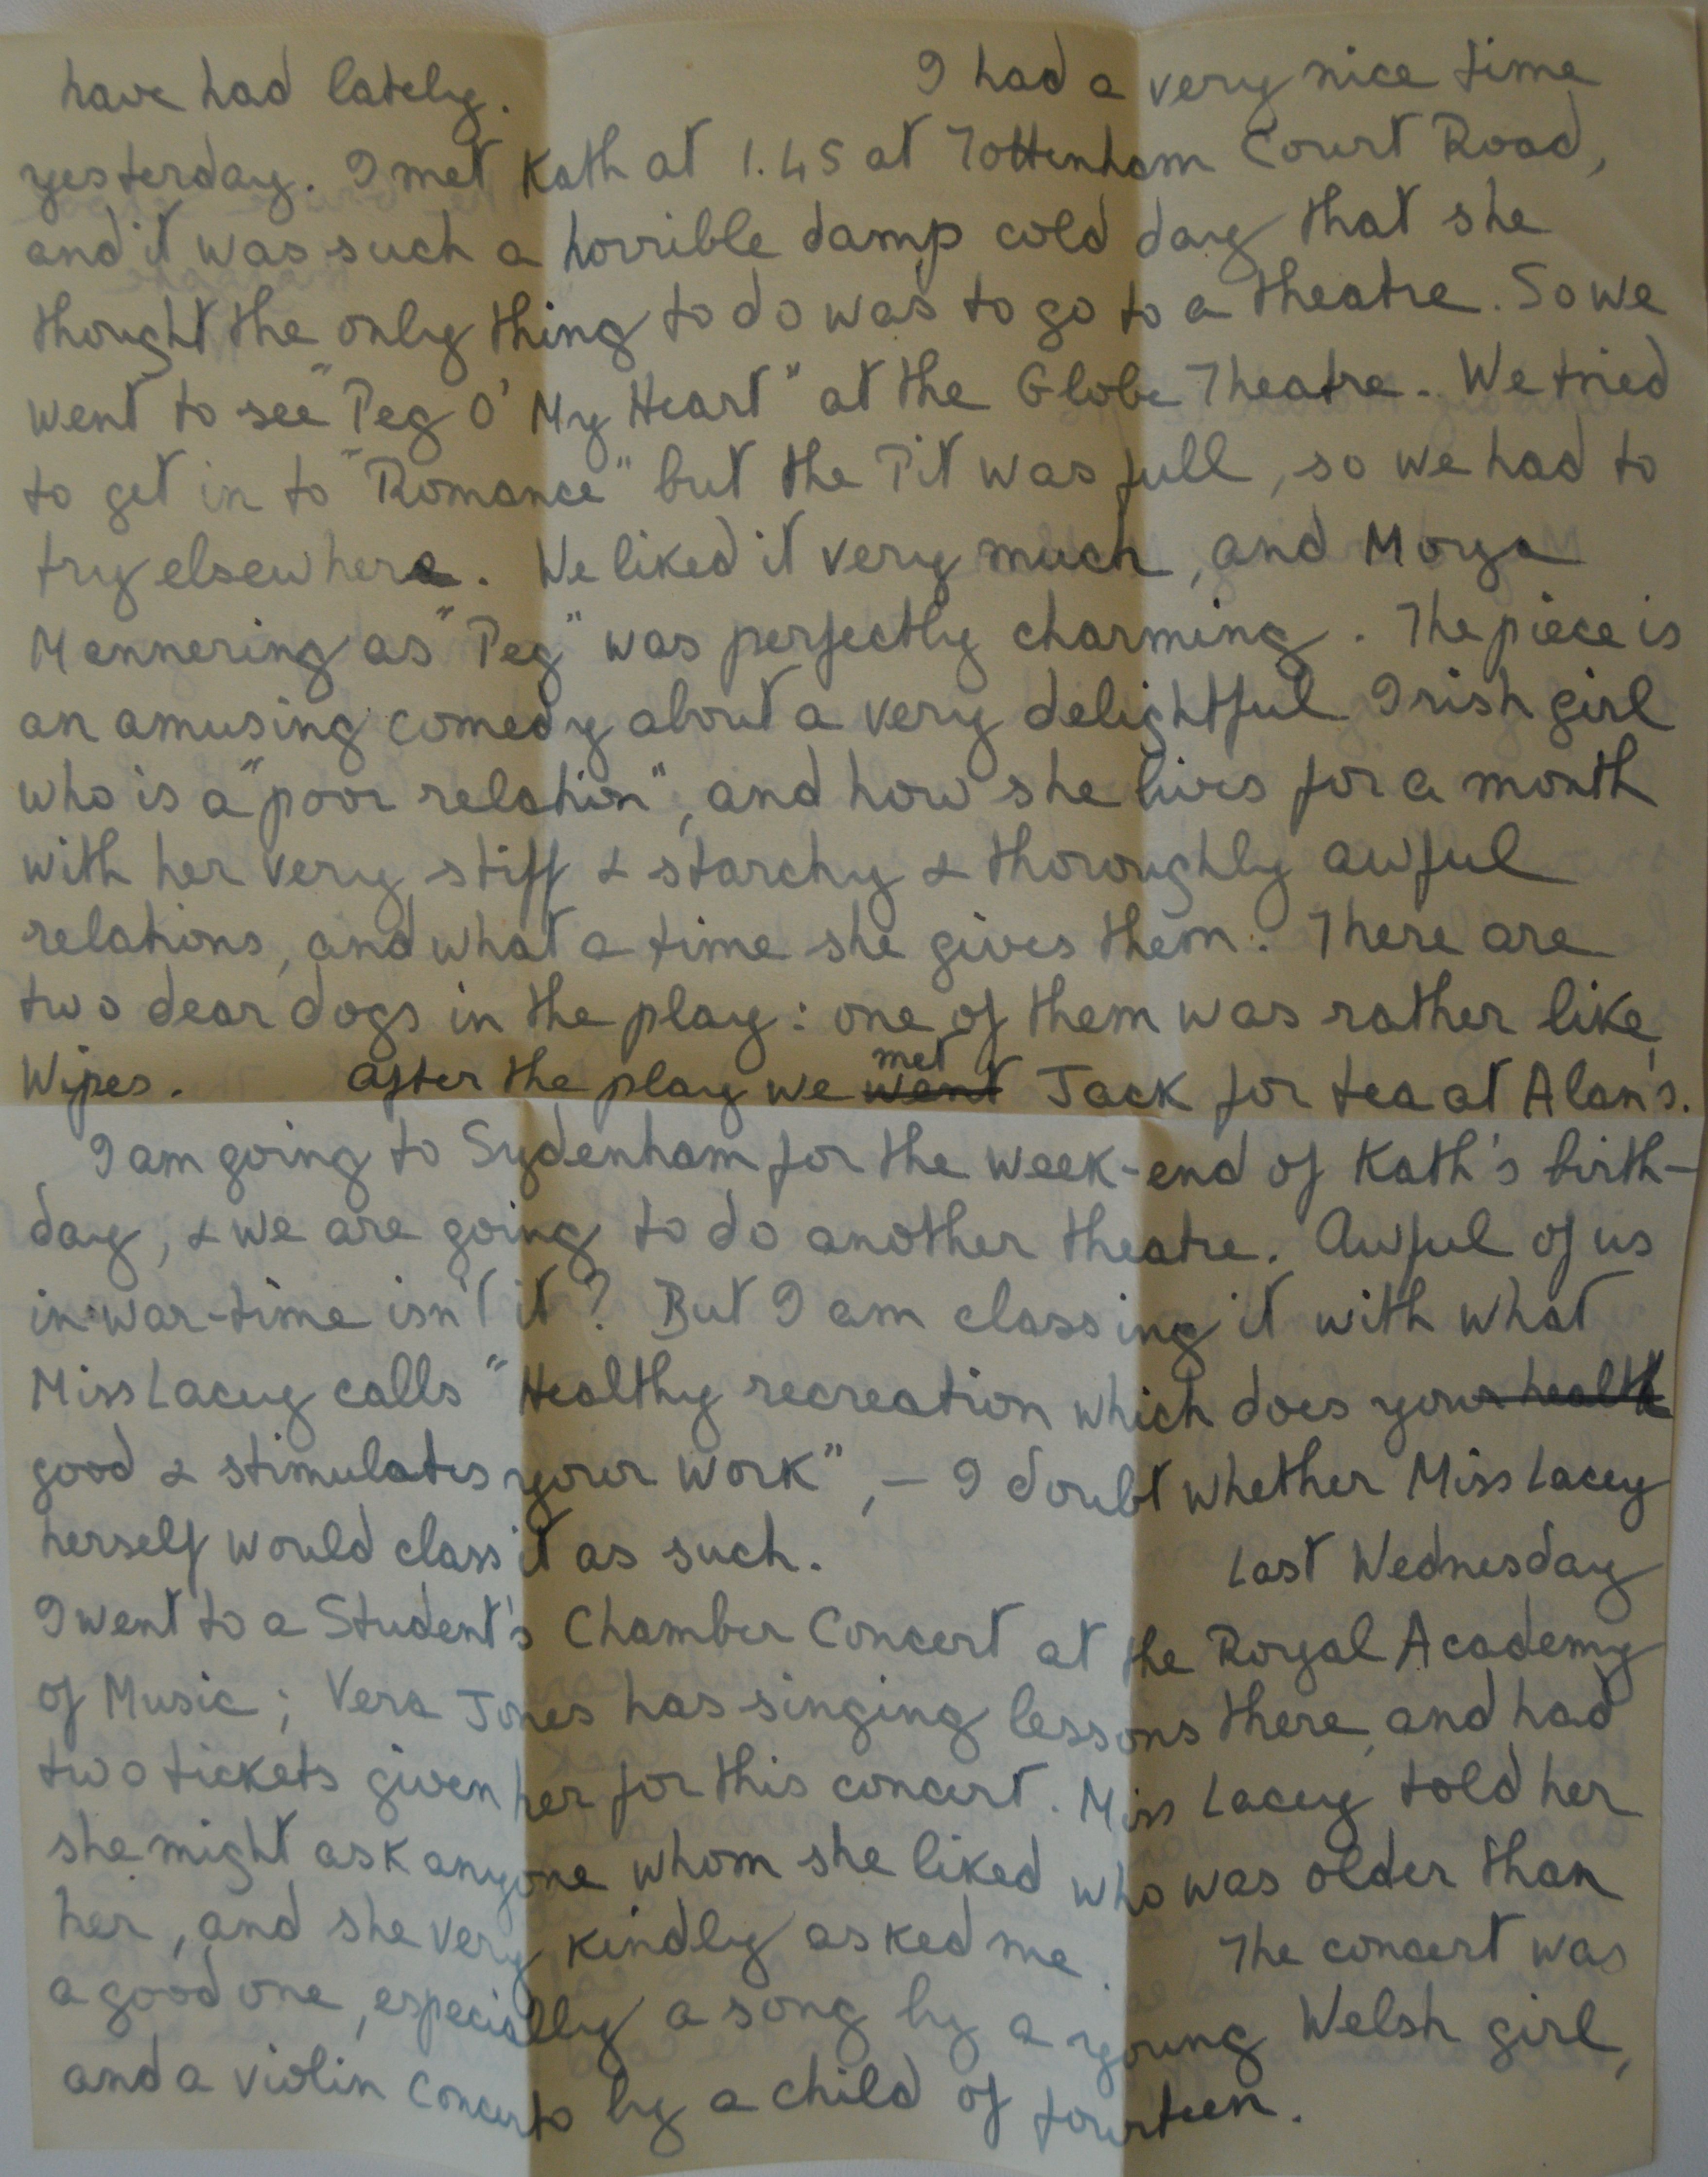 have had lately. I had a very nice time
yesterday. I met Kath at 1.45 at Tottenham Court Road,
and it was such a horrible damp cold day that she
thought the only thing to do was to go to a theatre. So we
went to see "Peg O' My Heart" at the Globe Theatre. We tried
to get in to "Romance" but the Pit was full, so we had to
try elsewhere. We liked it very much, and Moya
Mannering as "Peg" was perfectly charming. The piece is
an amusing comedy about a very delightful Irish girl
who is a "poor relation", and how she lives for a month
with her very stiff & starchy & thoroughly awful
relations, and what a time she gives them. There are
two dear dogs in the play: one of them was rather like
Wipes. After the play we went met Jack for tea at Alan's.
I am going to Sydenham for the week-end of Kath's birth-
day, & we are going to do another theatre. Awful of us
in war-time isn't it? But I am classing it with what
Miss Lacey calls "Healthy recreation which does your health
good & stimulates your work", – I doubt whether Miss Lacey
herself would class it as such. Last Wednesday
I went to a Student's Chamber Concert at the Royal Academy
of Music; Vera Jones has singing lessons there, and had
two tickets given her for this concert. Miss Lacey told her
she might ask anyone whom she liked who was older than
her, and she very kindly asked me. The concert was
a good one, especially a song by a young Welsh girl,
and a violin concerto by a child of fourteen.